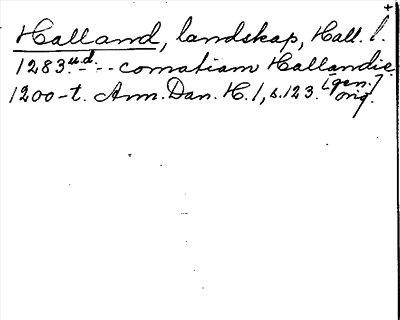 Halland, landskap, Hall. l.
1283 u.d. - - comatiam Hallandie [gen.]
1200-t. Ann. Dan. H. 1, s. 123. orig.